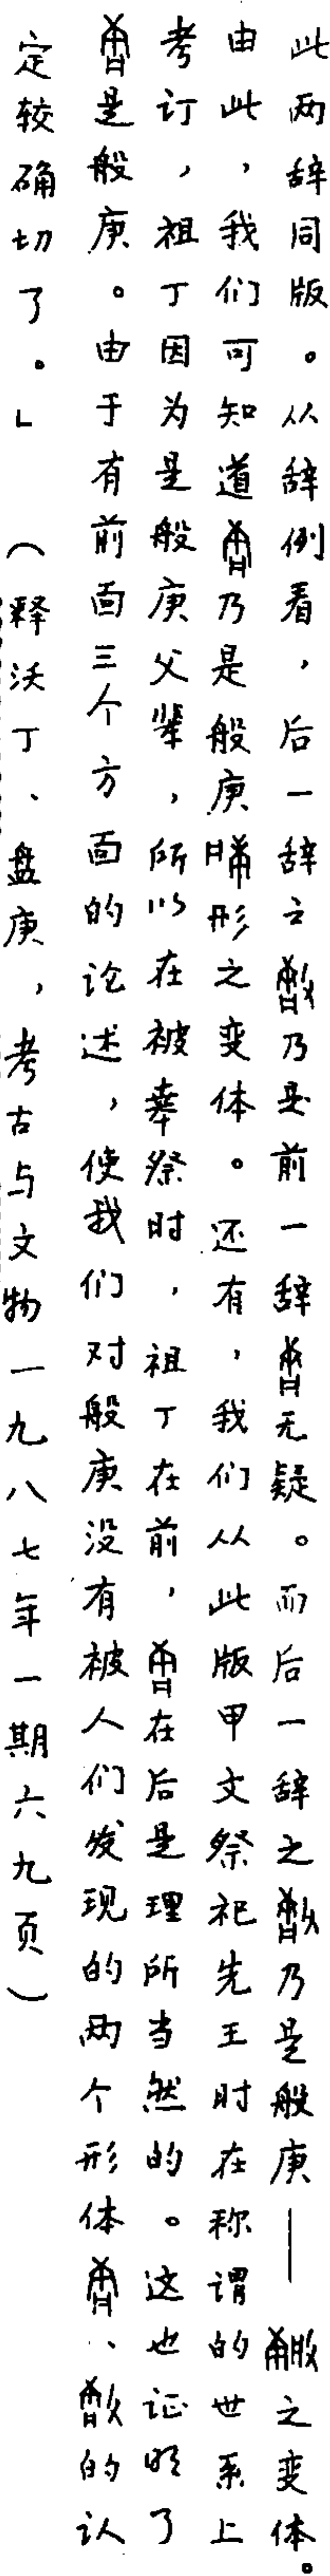 此两辞同版。从辞例看，后一辞之乃是前一辞无疑。而后一辞之乃是般庚——之变体。
由此，我们可知道乃是般庚形之变体。还有，我们从此版甲文祭祀先王时在称谓的世系上
考订，祖丁因为是般庚父辈，所以在被奉祭时，祖丁在前，在后是理所当然的。这也证明了
是般庚。由于有前面三个方面的论述，使我们对般庚没有被人们发现的两个形体、的认
定较确切了。」（释沃丁、盘庚，考古与文物一九八七年一期六九页）